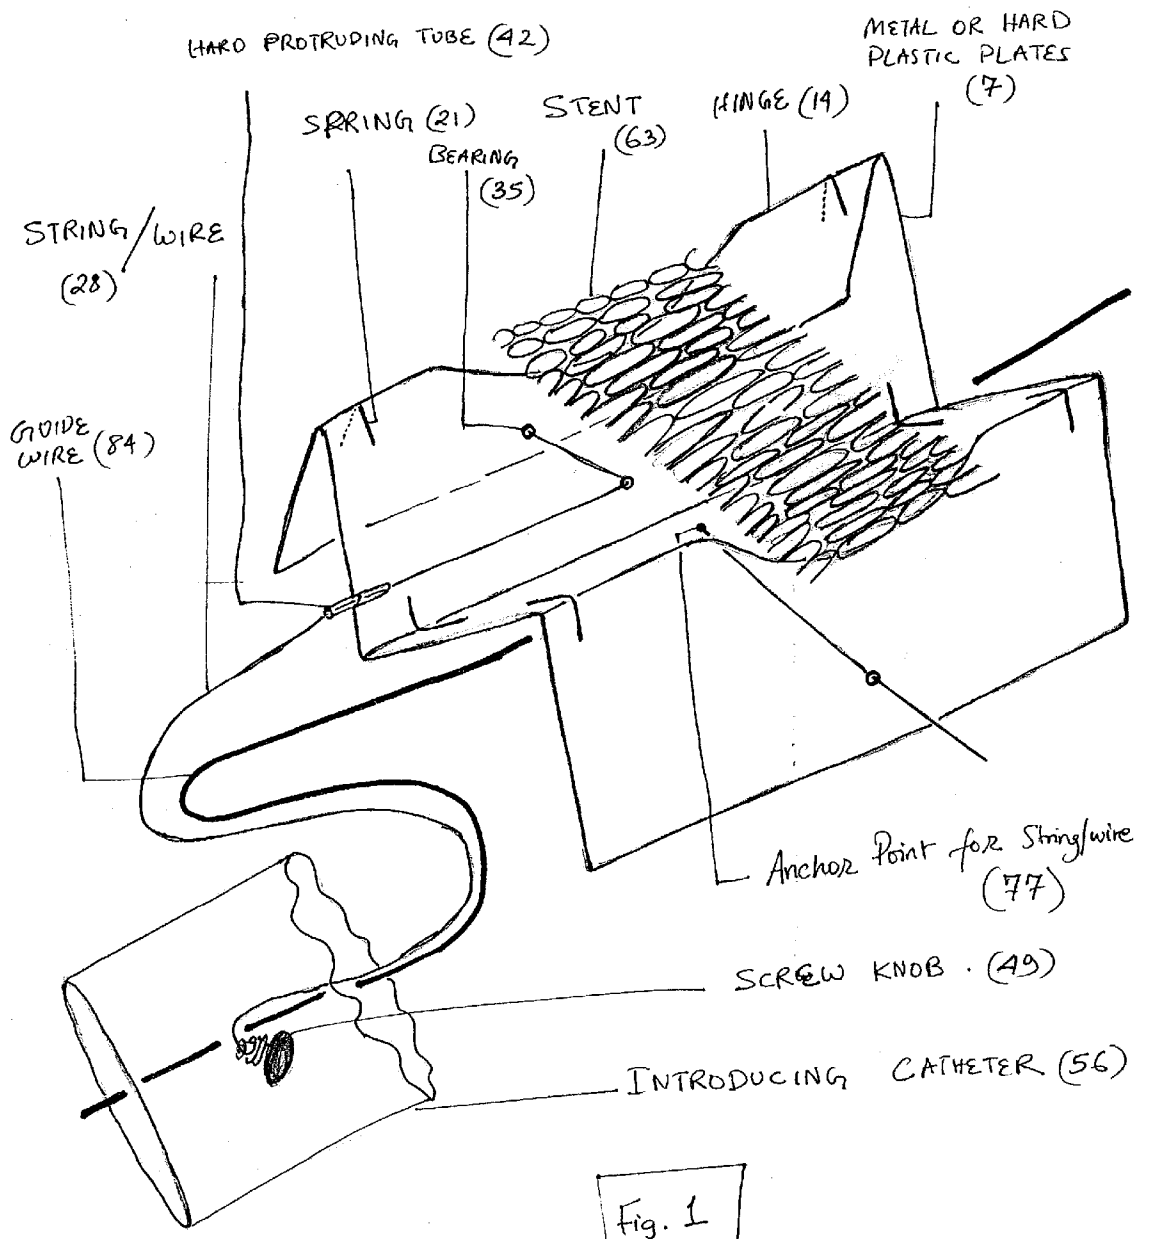 HARD PROTRUDING TUBE (42)
METAL OR HARD
PLASTIC PLATES
(7)
SPRING (21)
BEARING
(35)
STENT
(63)
HINGE (14)
STRING/WIRE
(28)
GUIDE
WIRE (84)
Anchor Point for String/wire
(77)
SCREW KNOB . (49)
INTRODUCING CATHETER (56)
Fig. 1